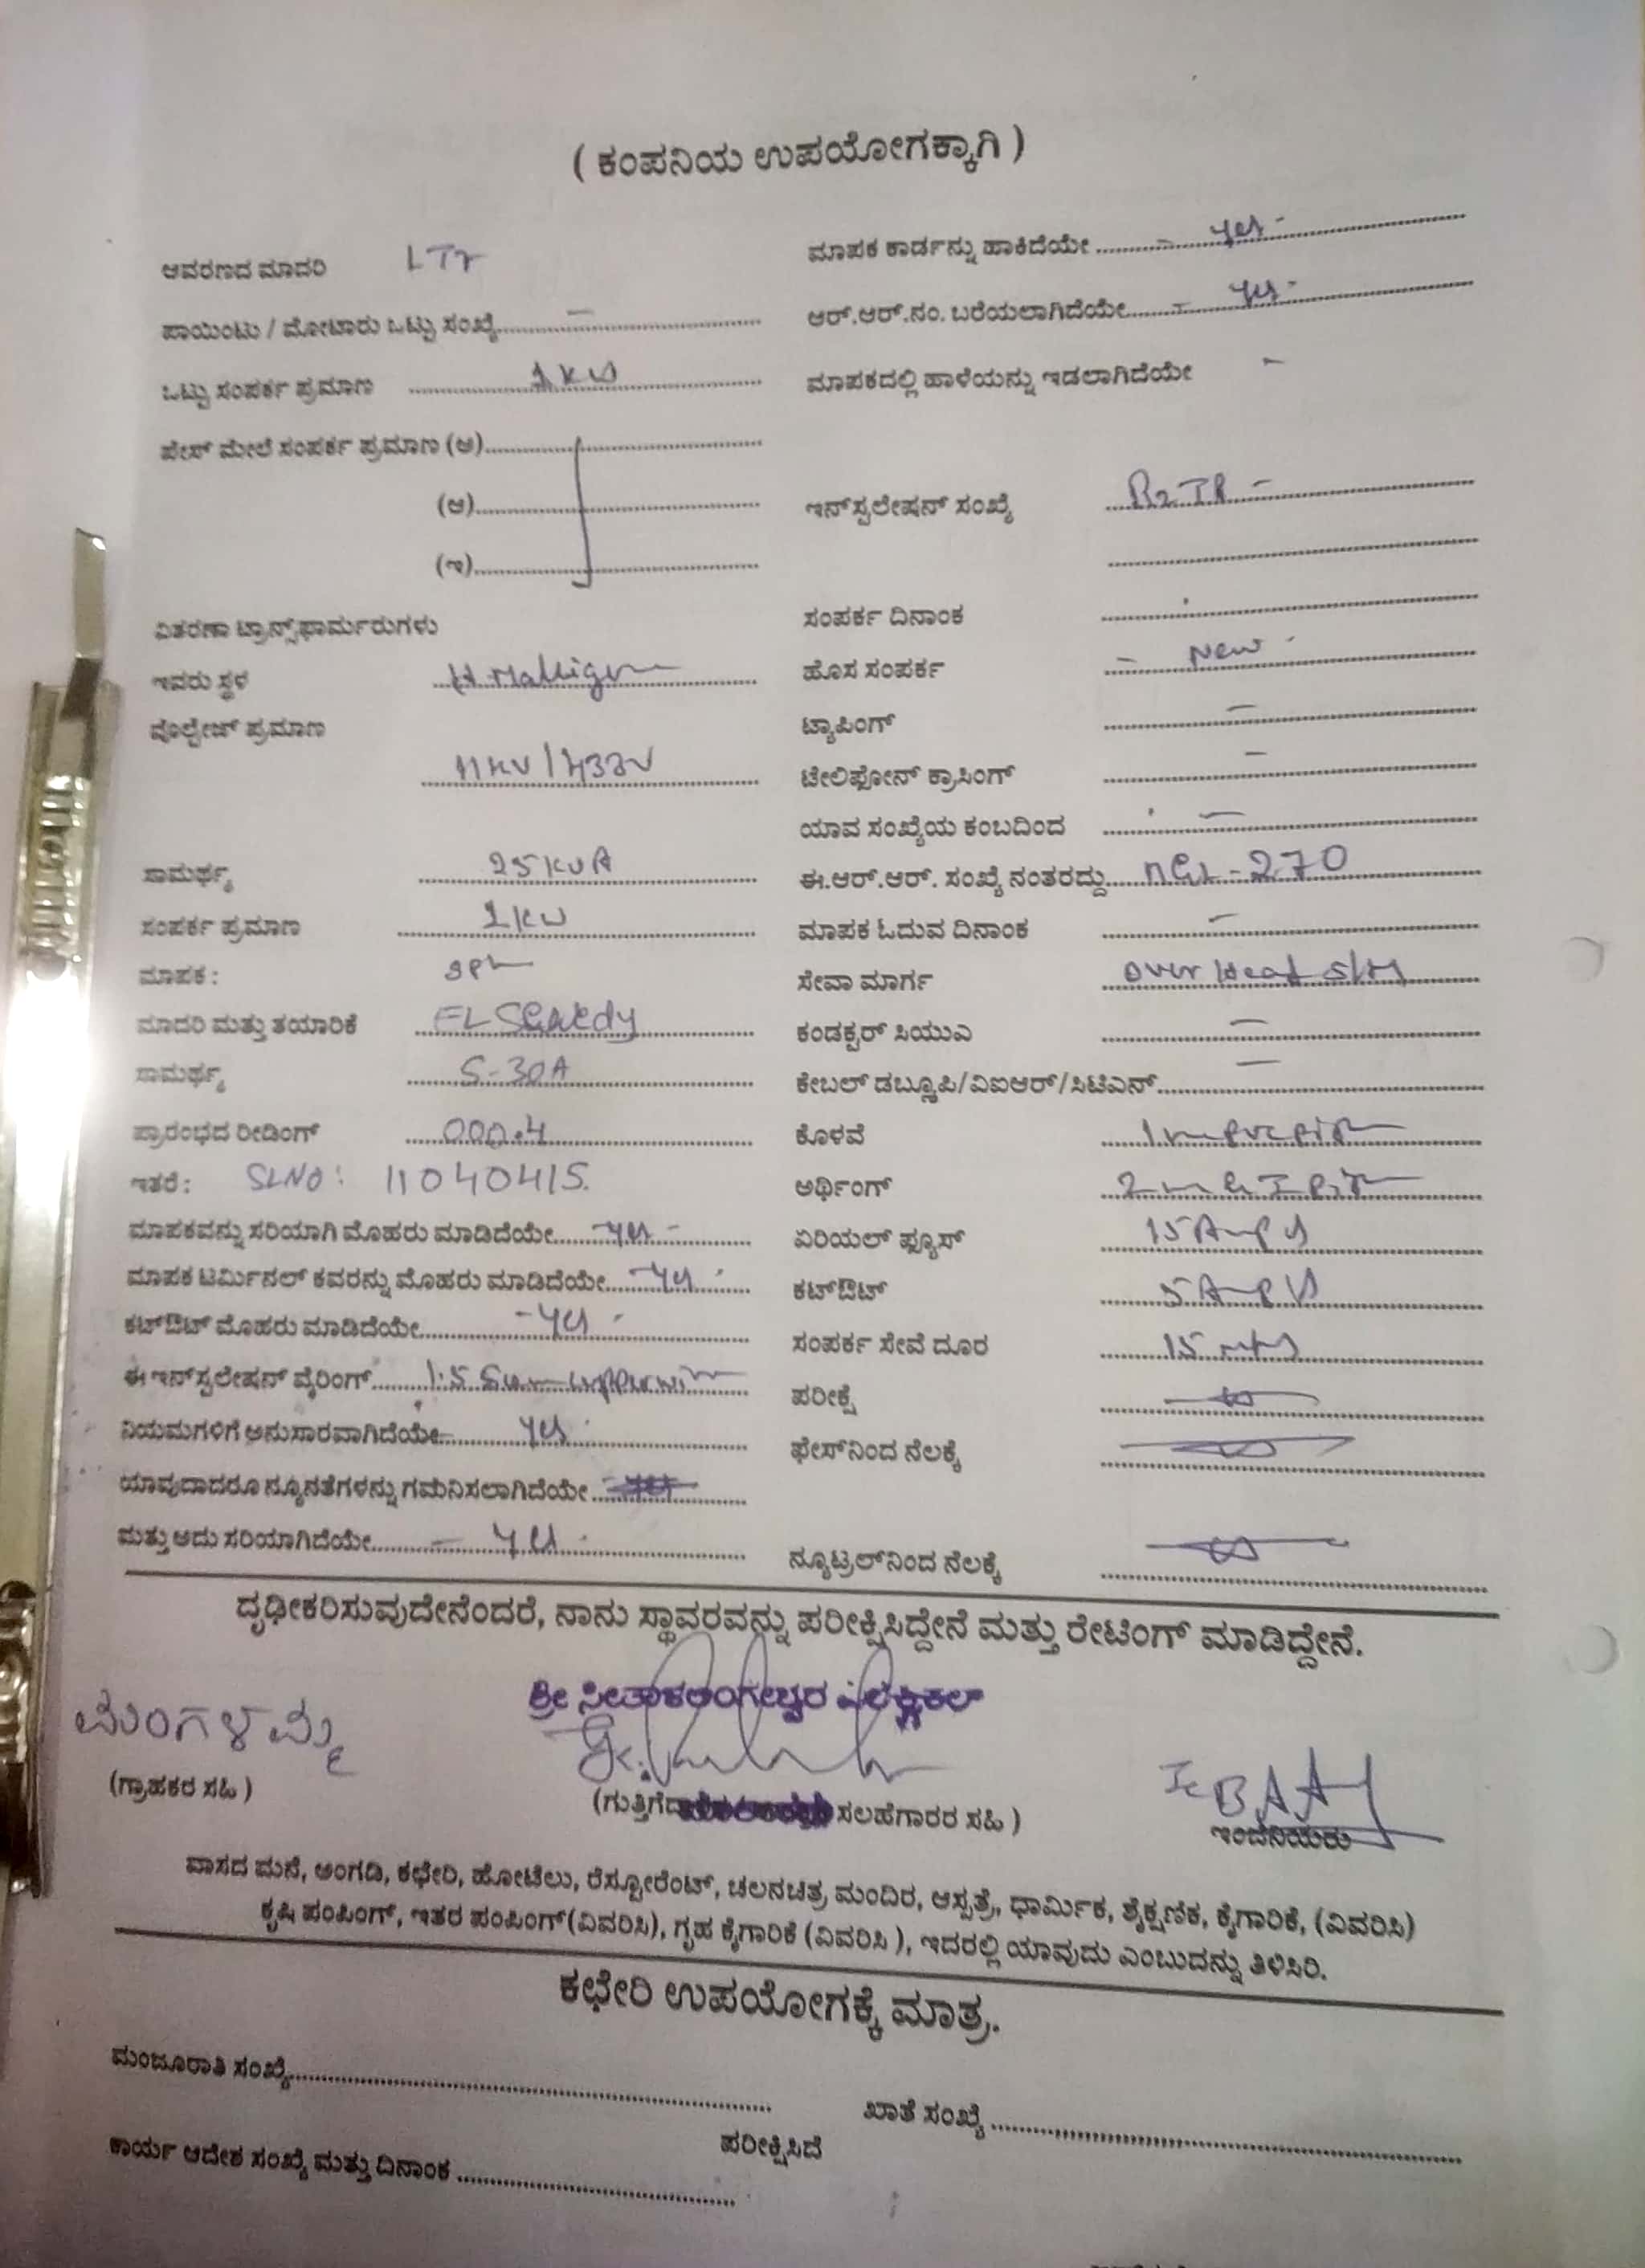 ( ಕಂಪನಿಯ ಉಪಯೋಗಕ್ಕಾಗಿ )
ಆವರಣದ ಮಾದರಿ
ಪಾಯಿಂಟು / ಮೋಟಾರು ಒಟ್ಟು ಸಂಖ್ಯೆ.......... –
ಒಟ್ಟು ಸಂಪರ್ಕ ಪ್ರಮಾಣ .......... 1 KW
ಫೇಸ್ ಮೇಲೆ ಸಂಪರ್ಕ ಪ್ರಮಾಣ (ಅ)..........
(ಆ)..........
(ಇ)..........
ವಿತರಣಾ ಟ್ರಾನ್ಸ್‌ಫಾರ್ಮರುಗಳು
ಇವರು ಸ್ಥಳ
ವೊಲ್ಟೇಜ್ ಪ್ರಮಾಣ
11KV / 433V
ಸಾಮರ್ಥ್ಯ .......... 25 KVA
ಸಂಪರ್ಕ ಪ್ರಮಾಣ .......... 1KW
ಮಾಪಕ :
ಮಾದರಿ ಮತ್ತು ತಯಾರಿಕೆ ..........
ಸಾಮರ್ಥ್ಯ .......... 5-30A
ಪ್ರಾರಂಭದ ರೀಡಿಂಗ್ .......... 000.4
ಇತರೆ : SLNO: 11040415.
ಮಾಪಕವನ್ನು ಸರಿಯಾಗಿ ಮೊಹರು ಮಾಡಿದೆಯೇ.......... yes -
ಮಾಪಕ ಟರ್ಮಿನಲ್ ಕವರನ್ನು ಮೊಹರು ಮಾಡಿದೆಯೇ.......... yes
ಕಟ್‌ಔಟ್ ಮೊಹರು ಮಾಡಿದೆಯೇ.......... - yes -
ಈ ಇನ್‌ಸ್ಟಲೇಷನ್ ವೈರಿಂಗ್.......... 1.5
ನಿಯಮಗಳಿಗೆ ಅನುಸಾರವಾಗಿದೆಯೇ.......... yes
ಯಾವುದಾದರೂ ನ್ಯೂನತೆಗಳನ್ನು ಗಮನಿಸಲಾಗಿದೆಯೇ ..........
ಮತ್ತು ಅದು ಸರಿಯಾಗಿದೆಯೇ.......... - yes
ಮಾಪಕ ಕಾರ್ಡನ್ನು ಹಾಕಿದೆಯೇ .......... - yes -
ಆರ್.ಆರ್.ನಂ. ಬರೆಯಲಾಗಿದೆಯೇ.......... - yes -
ಮಾಪಕದಲ್ಲಿ ಹಾಳೆಯನ್ನು ಇಡಲಾಗಿದೆಯೇ –
ಇನ್‌ಸ್ಟಲೇಷನ್ ಸಂಖ್ಯೆ ..........
ಸಂಪರ್ಕ ದಿನಾಂಕ ..........
ಹೊಸ ಸಂಪರ್ಕ .......... - New -
ಟ್ಯಾಪಿಂಗ್ .......... –
ಟೇಲಿಫೋನ್ ಕ್ರಾಸಿಂಗ್ .......... –
ಯಾವ ಸಂಖ್ಯೆಯ ಕಂಬದಿಂದ .......... –
ಈ.ಆರ್.ಆರ್. ಸಂಖ್ಯೆ ನಂತರದ್ದು.......... - 270
ಮಾಪಕ ಓದುವ ದಿನಾಂಕ .......... –
ಸೇವಾ ಮಾರ್ಗ .......... Over Head
ಕಂಡಕ್ಟರ್ ಸಿಯುಎ .......... –
ಕೇಬಲ್ ಡಬ್ಲ್ಯೂಪಿ/ವಿಐಆರ್/ಸಿಟಿಎನ್.......... –
ಕೊಳವೆ ..........
ಅರ್ಥಿಂಗ್ ..........
ಏರಿಯಲ್ ಫ್ಯೂಸ್ .......... 15 Amps
ಕಟ್‌ಔಟ್ .......... 5 Amps
ಸಂಪರ್ಕ ಸೇವೆ ದೂರ .......... 15 mts
ಪರೀಕ್ಷೆ ..........
ಫೇಸ್‌ನಿಂದ ನೆಲಕ್ಕೆ ..........
ನ್ಯೂಟ್ರಲ್‌ನಿಂದ ನೆಲಕ್ಕೆ ..........
ದೃಢೀಕರಿಸುವುದೇನೆಂದರೆ, ನಾನು ಸ್ಥಾವರವನ್ನು ಪರೀಕ್ಷಿಸಿದ್ದೇನೆ ಮತ್ತು ರೇಟಿಂಗ್ ಮಾಡಿದ್ದೇನೆ.
ಶ್ರೀ
ಮಂಗಳಮ್ಮ
(ಗ್ರಾಹಕರ ಸಹಿ )
ಸಲಹೆಗಾರರ ಸಹಿ )
ಇಂಜಿನಿಯರು
ವಾಸದ ಮನೆ, ಅಂಗಡಿ, ಕಛೇರಿ, ಹೋಟೆಲು, ರೆಸ್ಟೋರೆಂಟ್, ಚಲನಚಿತ್ರ ಮಂದಿರ, ಆಸ್ಪತ್ರೆ, ಧಾರ್ಮಿಕ, ಶೈಕ್ಷಣಿಕ, ಕೈಗಾರಿಕೆ, (ವಿವರಿಸಿ)
ಕೃಷಿ ಪಂಪಿಂಗ್, ಇತರ ಪಂಪಿಂಗ್(ವಿವರಿಸಿ), ಗೃಹ ಕೈಗಾರಿಕೆ (ವಿವರಿಸಿ ), ಇದರಲ್ಲಿ ಯಾವುದು ಎಂಬುದನ್ನು ತಿಳಿಸಿರಿ.
ಕಛೇರಿ ಉಪಯೋಗಕ್ಕೆ ಮಾತ್ರ.
ಮಂಜೂರಾತಿ ಸಂಖ್ಯೆ..........
ಖಾತೆ ಸಂಖ್ಯೆ ..........
ಪರೀಕ್ಷಿಸಿದೆ
ಕಾರ್ಯ ಆದೇಶ ಸಂಖ್ಯೆ ಮತ್ತು ದಿನಾಂಕ ..........